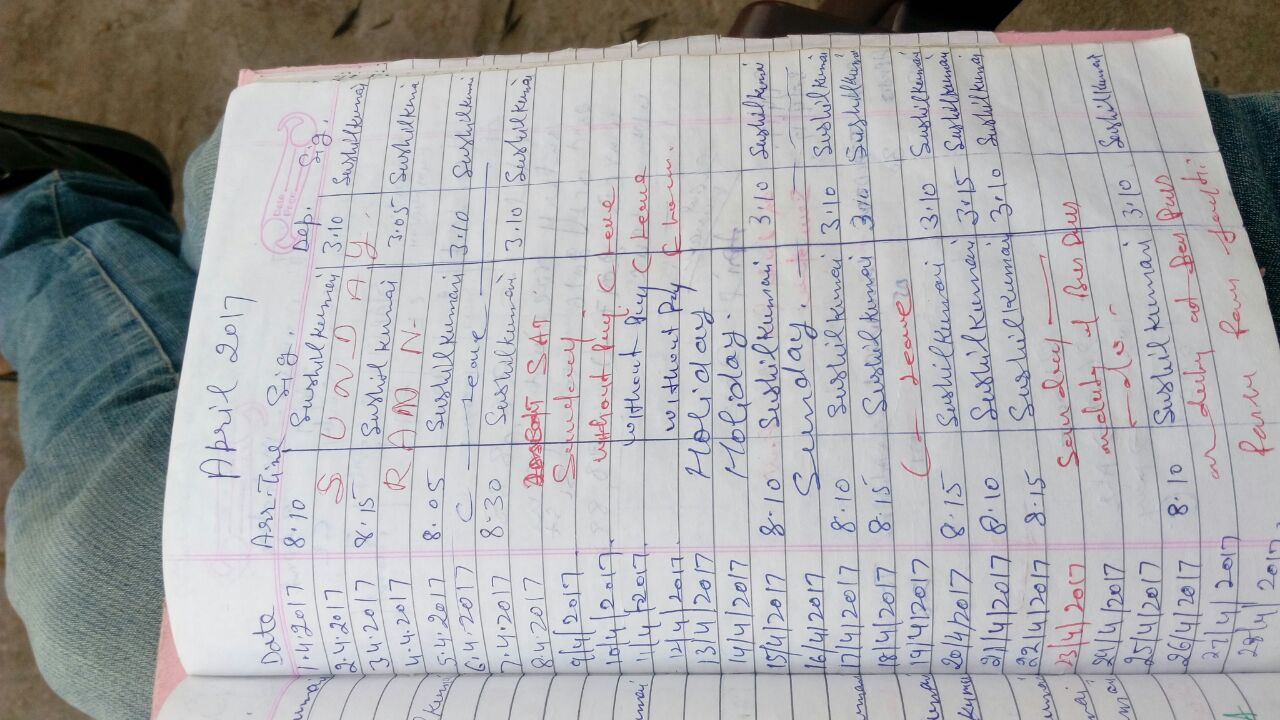 April 2017
Date Arr. Time Sig. Dep. Sig.
1.4.2017 8.10 Sushil kumari 3.10 Sushil kumari
2.4.2017 S U N D A Y
3.4.2017 8.15 Sushil kumari 3.05 Sushil kumari
4.4.2017 R A M N
5.4.2017 8.05 Sushil kumari 3.10 Sushil kumari
6.4.2017 C Leave
7.4.2017 8.30 Sushil kumari 3.10 Sushil kumari
8.4.2017 SAT
9/4/2017 Sunday
10/4/2017 without pay C Leave
11/4/2017 without Pay C Leave
12/4/2017 without Pay
13/4/2017 Holiday
14/4/2017 Holiday.
15/4/2017 8.10 Sushil kumari 3.10 Sushil kumari
16/4/2017 Sunday.
17/4/2017 8.10 Sushil kumari 3.10 Sushil kumari
18/4/2017 8.15 Sushil kumari 3.10 Sushil kumari
19/4/2017 C Leave
20/4/2017 8.15 Sushil kumari 3.10 Sushil kumari
21/4/2017 8.10 Sushil kumari 3.15 Sushil kumari
22/4/2017 8.15 Sushil kumari 3.10 Sushil kumari
23/4/2017 Sunday
24/4/2017
25/4/2017 do
26/4/2017 8.10 Sushil kumari 3.10 Sushil kumari
27/4/2017 on duty
28/4/2017